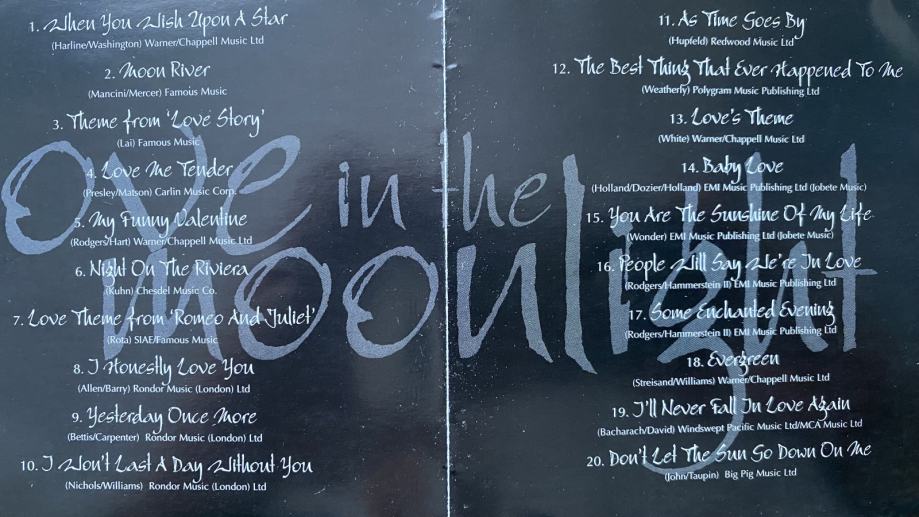 1. When You Wish Upon A Star
(Harline/Washington) Warner/Chappell Music Ltd
2. Moon River
(Mancini/Mercer) Famous Music
3. Theme from 'Love Story'
(Lai) Famous Music
4. Love Me Tender
(Presley/Matson) Carlin Music Corp.
5. My Funny Valentine
(Rodgers/Hart) Warner/Chappell Music Ltd
6. Night On The Riviera
(Kuhn) Chesdel Music Co.
7. Love Theme from 'Romeo And Juliet'
(Rota) SIAE/Famous Music
8. I Honestly Love You
(Allen/Barry) Rondor Music (London) Ltd
9. Yesterday Once More
(Bettis/Carpenter) Rondor Music (London) Ltd
10. I Won't Last A Day Without You
(Nichols/Williams) Rondor Music (London) Ltd
11. As Time Goes By
(Hupfeld) Redwood Music Ltd
12. The Best Thing That Ever Happened To Me
(Weatherly) Polygram Music Publishing Ltd
13. Love's Theme
(White) Warner/Chappell Music Ltd
14. Baby Love
(Holland/Dozier/Holland) EMI Music Publishing Ltd (Jobete Music)
15. You Are The Sunshine Of My Life
(Wonder) EMI Music Publishing Ltd (Jobete Music)
16. People Will Say We're In Love
(Rodgers/Hammerstein II) EMI Music Publishing Ltd
17. Some Enchanted Evening
(Rodgers/Hammerstein II) EMI Music Publishing Ltd
18. Evergreen
(Streisand/Williams) Warner/Chappell Music Ltd
19. I'll Never Fall In Love Again
(Bacharach/David) Windswept Pacific Music Ltd/MCA Music Ltd
20. Don't Let The Sun Go Down On Me
(John/Taupin) Big Pig Music Ltd
ove in the
moonlight